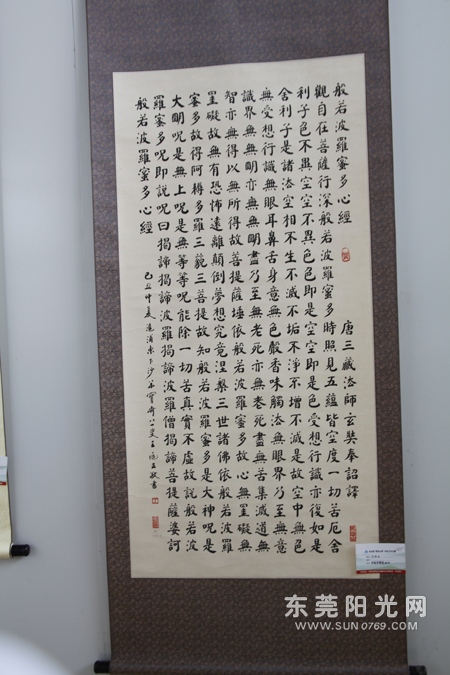 般若波羅蜜多心經 唐三藏法師玄奘奉詔譯
觀自在菩薩行深般若波羅蜜多時照見五蘊皆空度一切苦厄舍
利子色不異空空不異色色即是空空即是色受想行識亦復如是
舍利子是諸法空相不生不滅不垢不淨不增不減是故空中無色
無受想行識無眼耳鼻舌身意無色聲香味觸法無眼界乃至無意
識界無無明亦無無明盡乃至無老死亦無老死盡無苦集滅道無
智亦無得以無所得故菩提薩埵依般若波羅蜜多故心無罣礙無
罣礙故無有恐怖遠離顛倒夢想究竟涅槃三世諸佛依般若波羅
蜜多故得阿耨多羅三藐三菩提故知般若波羅蜜多是大神呪是
大明呪是無上呪是無等等呪能除一切苦真實不虛故說般若波
羅蜜多呪即說呪曰揭諦揭諦波羅揭諦波羅僧揭諦菩提薩婆訶
般若波羅蜜多心經
己丑仲夏
东莞阳光网
WWW.SUN0769.COM